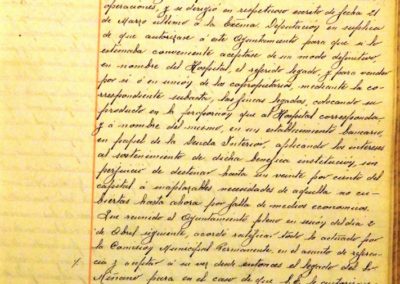 operaciones, y se dirigió en respetuoso escrito de fecha 21
de Marzo último a la Excma. Diputación en suplica
de que autorizase a este Ayuntamiento para que si lo
estimaba conveniente aceptase de un modo definitivo,
en nombre del Hospital, el referido legado, y para vender
por si ó en union de los copropietarios, mediante la co-
rrespondiente subasta, las fincas legadas, colocando su
producto en la proporción que al Hospital corresponda,
y á nombre del mismo, en un establecimiento bancario,
en papel de la Deuda Interior, aplicando los intereses
al sostenimiento de dicha benefica institución, sin
perjuicio de destinar hasta un veinte por ciento del
capital á inaplazables necesidades de aquella no cu-
biertas hasta ahora por falta de medios economicos.
Que reunido el Ayuntamiento pleno en sesión del dia 2
de Abril siguiente, acordó ratificar todo lo actuado por
la Comisión Municipal Permanente, en el asunto de referen-
cia y aceptar á su vez desde entonces el legado del Sr.
Miñano para en el caso de que